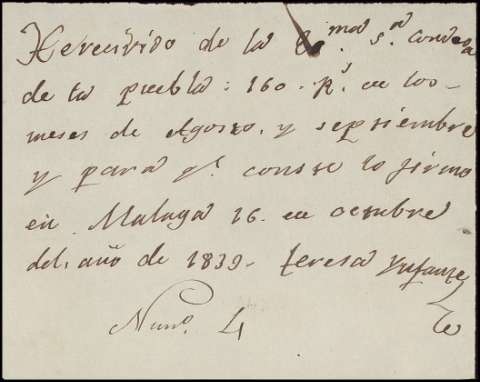 He recivido de la Exma Sra condesa
de la puebla: 160. Rs en los
meses de Agosto, y septiembre
y para qe conste lo firmo
en Malaga 16. en octubre
del año de 1839- teresa Ynfante
Numo. 4